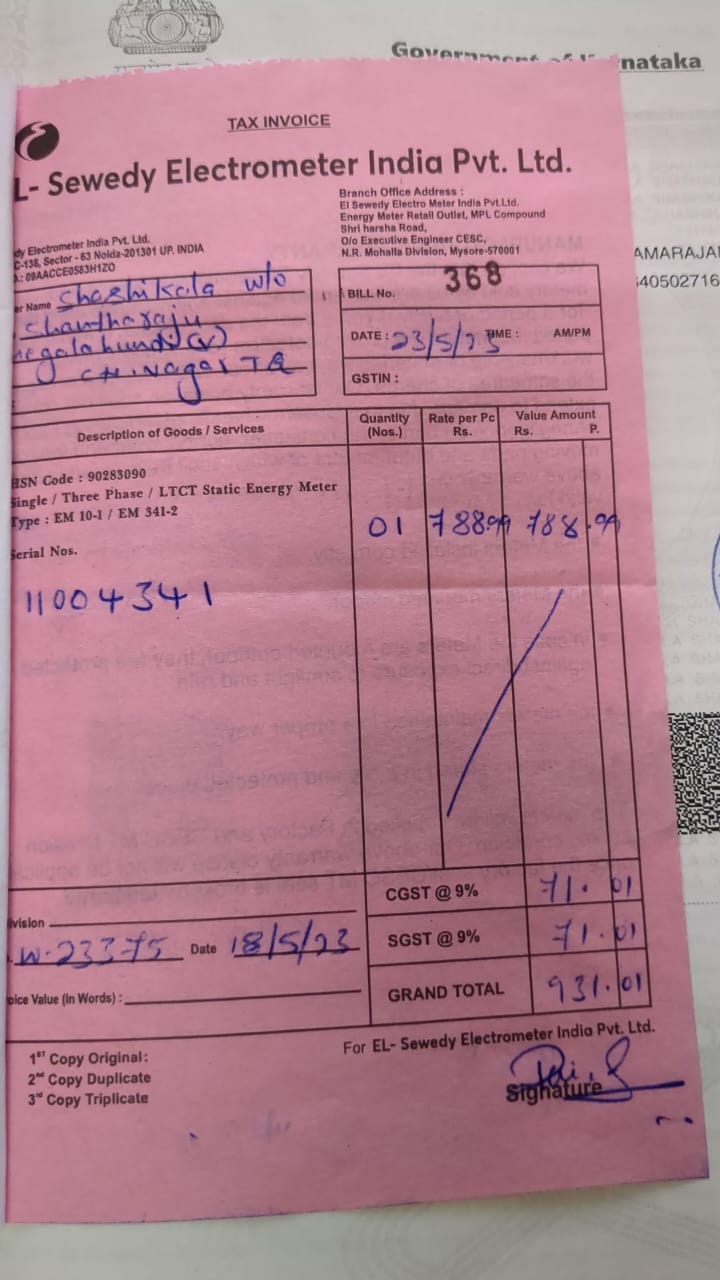 Government of Karnataka
TAX INVOICE
L- Sewedy Electrometer India Pvt. Ltd.
dy Electrometer India Pvt. Ltd.
C-136, Sector - 63 Noida-201301 UP. INDIA
.: 09AACCE0583H1ZO
Branch Office Address :
El Sewedy Electro Meter India Pvt.Ltd.
Energy Meter Retail Outlet, MPL Compound
Shri harsha Road,
O/o Executive Engineer CESC,
N.R. Mohalla Division, Mysore-570001
AMARAJA
40502716
er Name Shashikala w/o
Shantharaju
CH.Nagar TQ
BILL No. 368
DATE : 23/5/23 TIME : AM/PM
GSTIN :
Description of Goods / Services Quantity (Nos.) Rate per Pc Rs. Value Amount Rs. P.
HSN Code : 90283090
Single / Three Phase / LTCT Static Energy Meter
Type : EM 10-1 / EM 341-2
01 788.99 788.99
Serial Nos.
11004341
CGST @ 9% 71.01
ivision
SGST @ 9% 71.01
W-23375 Date 18/5/23
oice Value (In Words) :
GRAND TOTAL 931.01
For EL- Sewedy Electrometer India Pvt. Ltd.
1ST Copy Original:
2nd Copy Duplicate
3rd Copy Triplicate
Signature